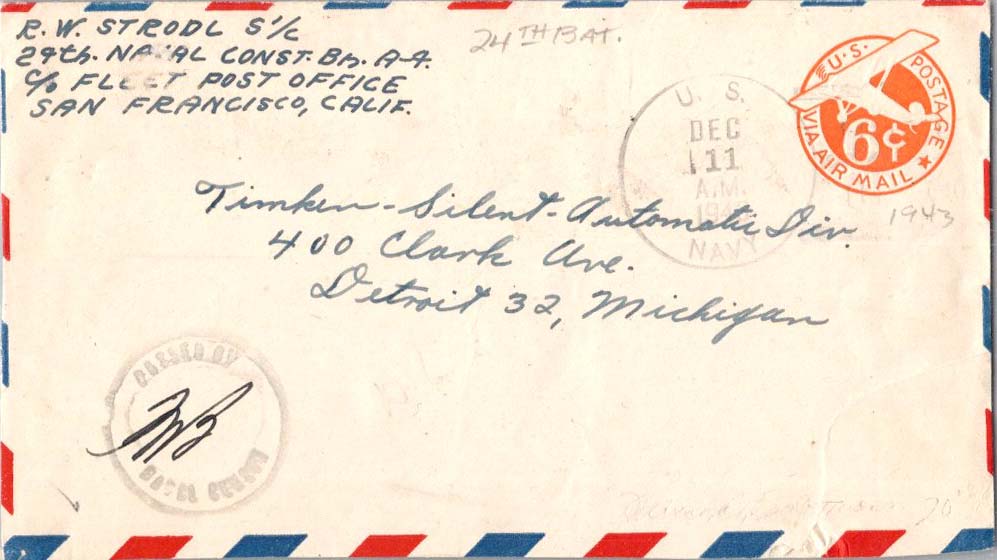 R. W. STRODL S 1/C
24th. NAVAL CONST. Bn. A-4.
C/o FLEET POST OFFICE
SAN FRANCISCO, CALIF.
24TH BAT.
U. S.
DEC
11
A.M.
NAVY
U.S. POSTAGE
6¢
VIA AIR MAIL
1943
Timken-Silent-Automatic Div.
400 Clark Ave.
Detroit 32, Michigan
PASSED BY
NAVAL CENSOR